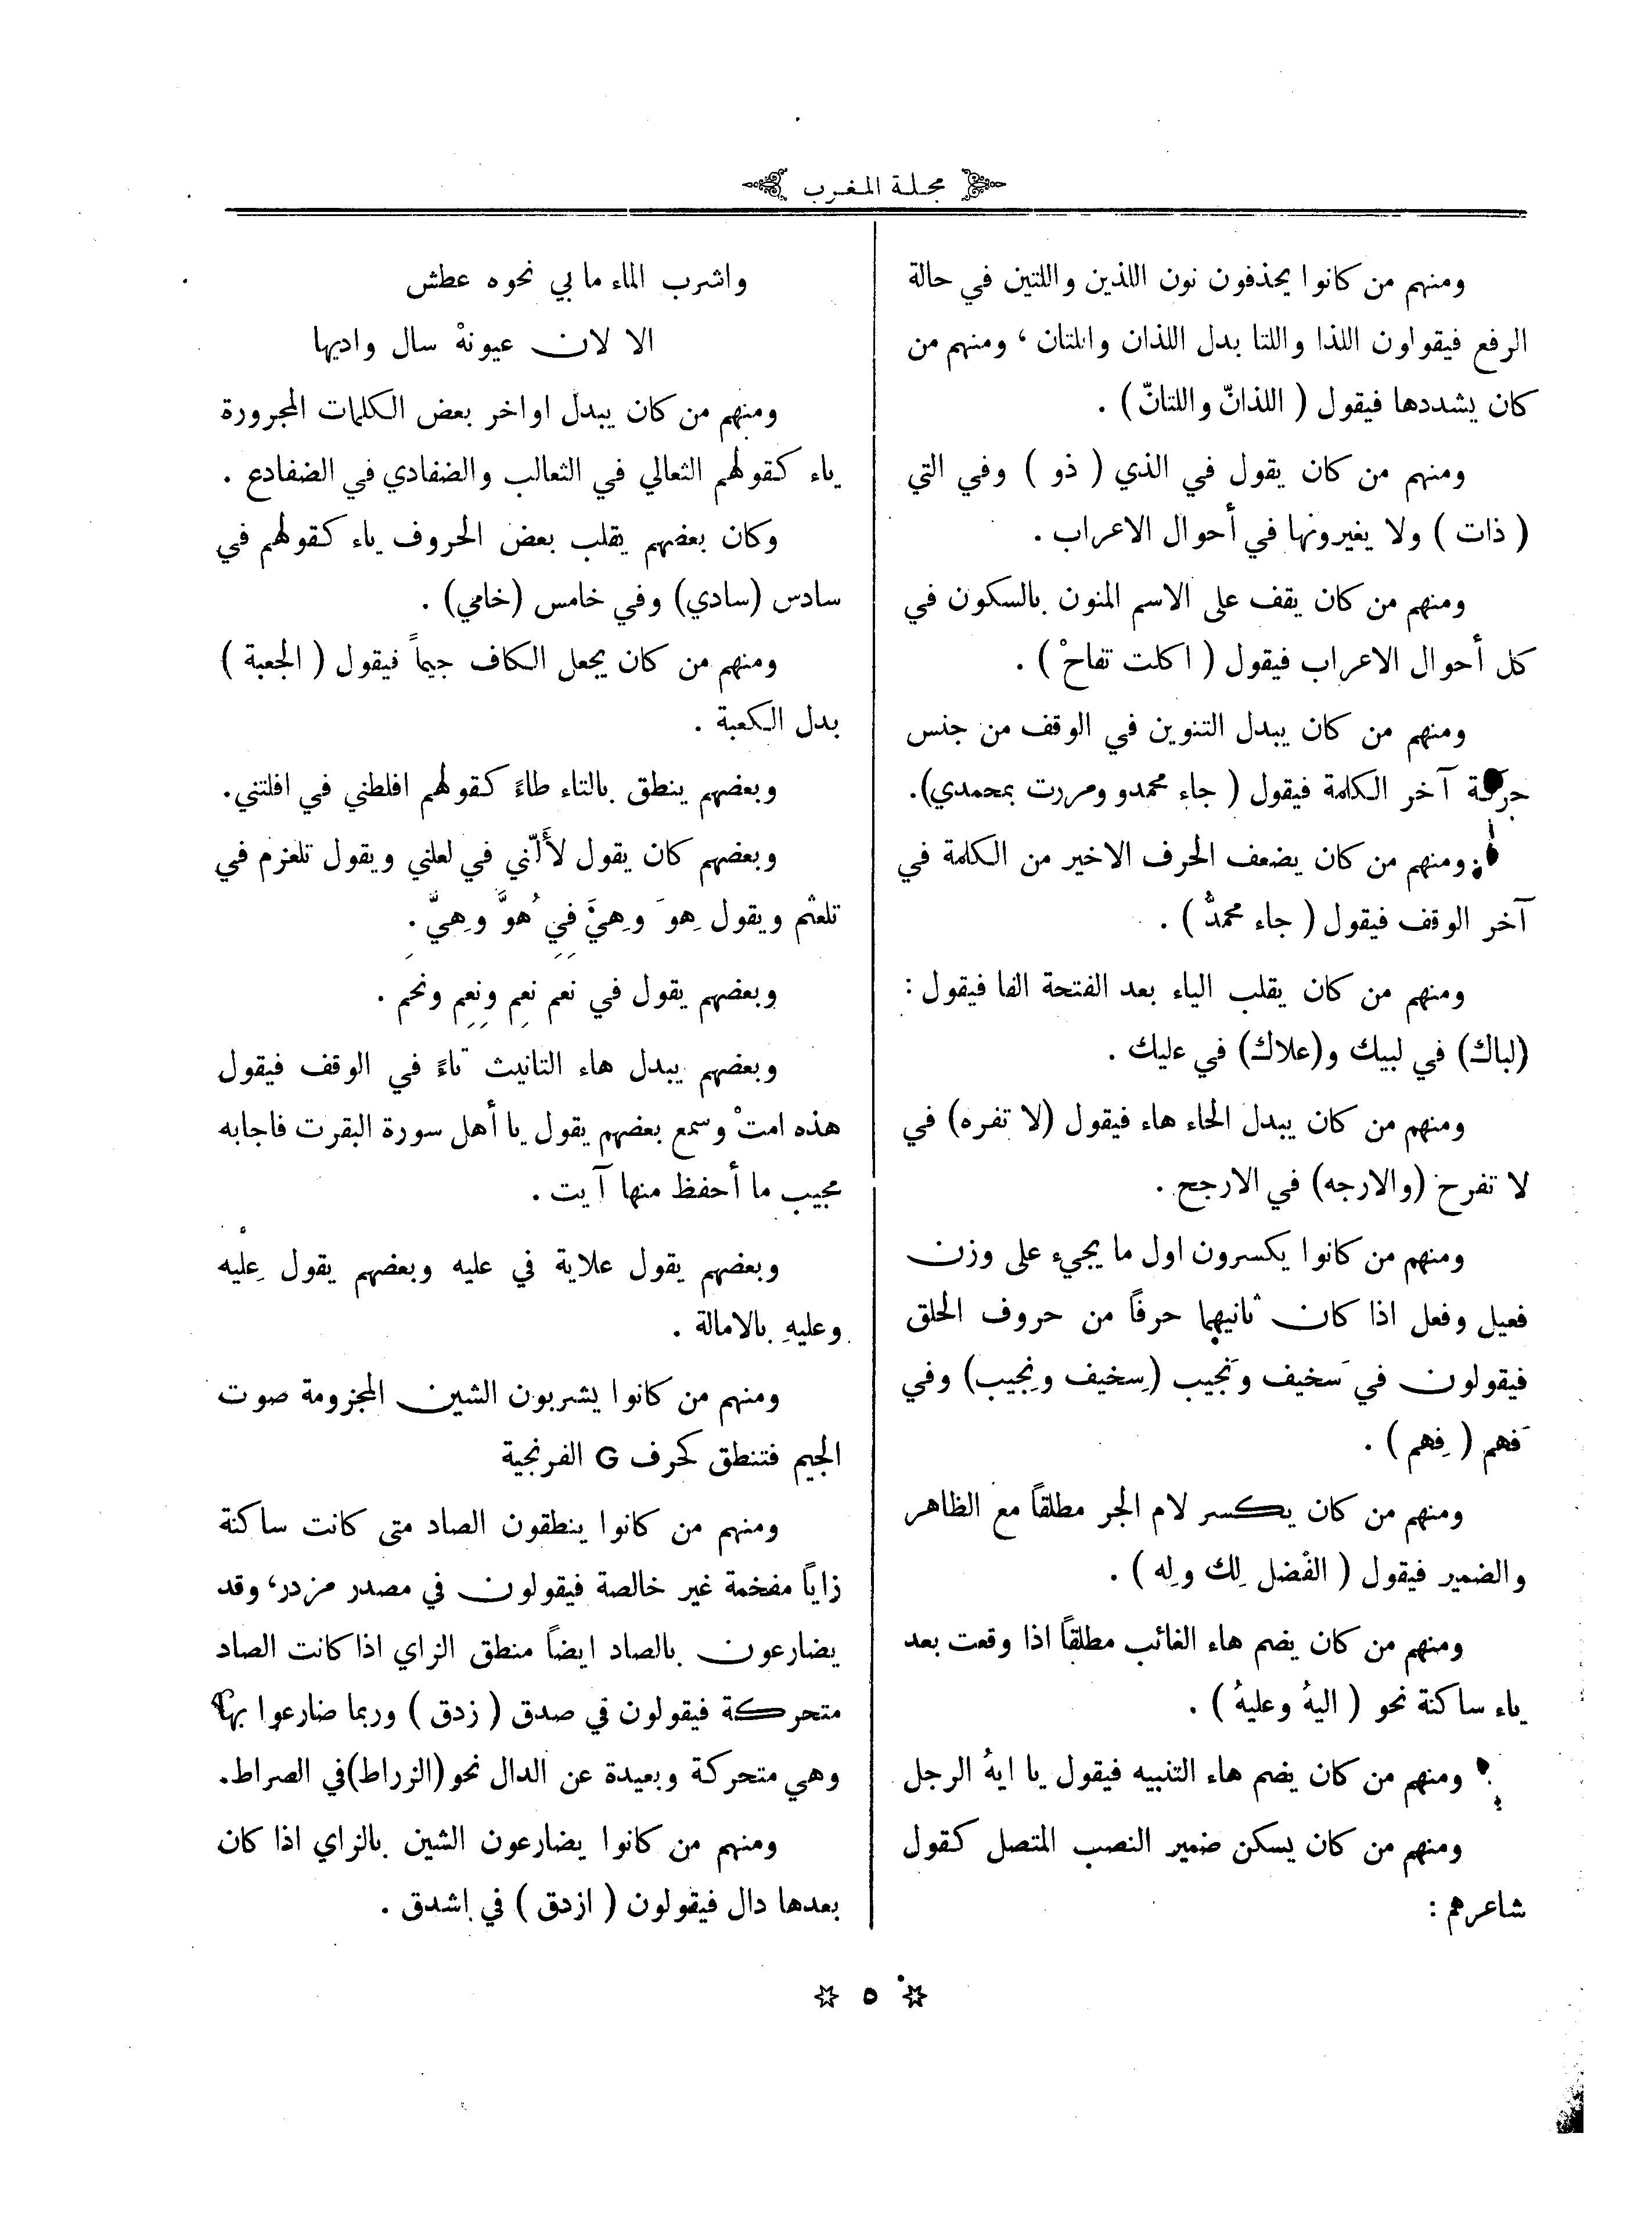 مجلة المغرب
ومنهم من كانوا يحذفون نون اللذين واللتين في حالة
الرفع فيقولون اللذا واللتا بدل اللذان واللتان ، ومنهم من
كان يشددها فيقول ( اللذانّ واللتانّ ) .
ومنهم من كان يقول في الذي ( ذو ) وفي التي
( ذات ) ولا يغيرونها في أحوال الاعراب .
ومنهم من كان يقف على الاسم المنون بالسكون في
كل أحوال الاعراب فيقول ( اكلت تفاحْ ) .
ومنهم من كان يبدل التنوين في الوقف من جنس
حركة آخر الكلمة فيقول ( جاء محمدو ومررت بمحمدي).
ومنهم من كان يضعف الحرف الاخير من الكلمة في
آخر الوقف فيقول ( جاء محمدّ ) .
ومنهم من كان يقلب الياء بعد الفتحة الفا فيقول :
(لباك) في لبيك و(علاك) في عليك .
ومنهم من كان يبدل الحاء هاء فيقول (لا تفره) في
لا تفرح (والارجه) في الارجح .
ومنهم من كانوا يكسرون اول ما يجيء على وزن
فعيل وفعل اذا كان ثانيهما حرفاً من حروف الحلق
فيقولون في سَخيف ونَجيب (سِخيف ونِجيب) وفي
فَهم ( فِهم ) .
ومنهم من كان يكسر لام الجر مطلقاً مع الظاهر
والضمير فيقول ( الفْضل لِك ولِه ) .
ومنهم من كان يضم هاء الغائب مطلقاً اذا وقعت بعد
ياء ساكنة نحو ( اليهُ وعليهُ ) .
ومنهم من كان يضم هاء التنبيه فيقول يا ايهُ الرجل
ومنهم من كان يسكن ضمير النصب المتصل كقول
شاعرهم :
واشرب الماء ما بي نحوه عطش
الا لان عيونهْ سال واديها
ومنهم من كان يبدل اواخر بعض الكلمات المجرورة
ياء كقولهم الثعالي في الثعالب والضفادي في الضفادع .
وكان بعضهم يقلب بعض الحروف ياء كقولهم في
سادس (سادي) وفي خامس (خامي) .
ومنهم من كان يجعل الكاف جيماً فيقول ( الجعبة )
بدل الكعبة .
وبعضهم ينطق بالتاء طاءً كقولهم افلطني في افلتني.
وبعضهم كان يقول لأَنّني في لعلني ويقول تلعزم في
تلعثم ويقول هِوَ وهِيَ في هُوَّ وهِيَّ .
وبعضهم يقول في نعم نعِم ونِعِم ونحم .
وبعضهم يبدل هاء التانيث تاءً في الوقف فيقول
هذه امتْ وسمع بعضهم يقول يا أهل سورة البقرت فاجابه
مجيب ما أحفظ منها آيت .
وبعضهم يقول علاية في عليه وبعضهم يقول عِلْيه
وعليهِ بالامالة .
ومنهم من كانوا يشربون الشين المجزومة صوت
الجيم فتنطق كحرف G الفرنجية
ومنهم من كانوا ينطقون الصاد متى كانت ساكنة
زاياً مفخمة غير خالصة فيقولون في مصدر مزدر، وقد
يضارعون بالصاد ايضاً منطق الزاي اذا كانت الصاد
متحركة فيقولون في صدق ( زدق ) وربما ضارعوا بها
وهي متحركة وبعيدة عن الدال نحو (الزراط) في الصراط.
ومنهم من كانوا يضارعون الشين بالزاي اذا كان
بعدها دال فيقولون ( ازدق ) في اشدق .
٥